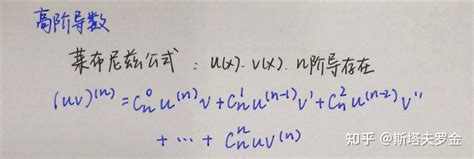 高阶导数
莱布尼兹公式：u(x)·v(x)·n阶导存在
(uv)⁽ⁿ⁾=Cₙ⁰u⁽ⁿ⁾v+Cₙ¹u⁽ⁿ⁻¹⁾v'+Cₙ²u⁽ⁿ⁻²⁾v''
+…+Cₙⁿuv⁽ⁿ⁾
知乎 @斯塔夫罗金